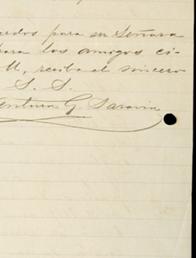 para su Señora
para los amigos ci-
U, reciba el sincero
S. S.
entura G. Saravia